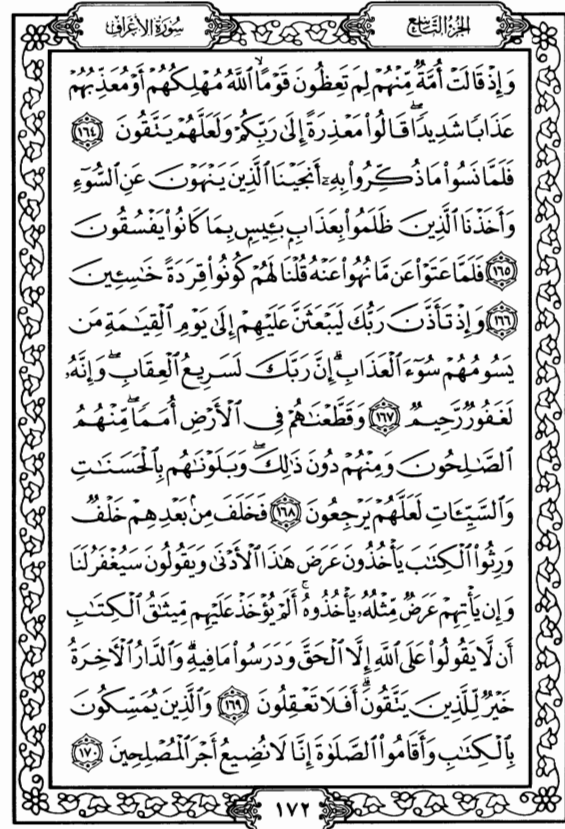 سُورَةُ الأَعْرَافِ الجُزْءُ التَّاسِعُ
وَإِذْ قَالَتْ أُمَّةٌ مِّنْهُمْ لِمَ تَعِظُونَ قَوْمًا ۙ ٱللَّهُ مُهْلِكُهُمْ أَوْ مُعَذِّبُهُمْ
عَذَابًا شَدِيدًا ۖ قَالُوا۟ مَعْذِرَةً إِلَىٰ رَبِّكُمْ وَلَعَلَّهُمْ يَتَّقُونَ ١٦٤
فَلَمَّا نَسُوا۟ مَا ذُكِّرُوا۟ بِهِۦٓ أَنجَيْنَا ٱلَّذِينَ يَنْهَوْنَ عَنِ ٱلسُّوٓءِ
وَأَخَذْنَا ٱلَّذِينَ ظَلَمُوا۟ بِعَذَابٍۭ بَـِٔيسٍۭ بِمَا كَانُوا۟ يَفْسُقُونَ
١٦٥ فَلَمَّا عَتَوْا۟ عَن مَّا نُهُوا۟ عَنْهُ قُلْنَا لَهُمْ كُونُوا۟ قِرَدَةً خَـٰسِـِٔينَ
١٦٦ وَإِذْ تَأَذَّنَ رَبُّكَ لَيَبْعَثَنَّ عَلَيْهِمْ إِلَىٰ يَوْمِ ٱلْقِيَـٰمَةِ مَن
يَسُومُهُمْ سُوٓءَ ٱلْعَذَابِ ۗ إِنَّ رَبَّكَ لَسَرِيعُ ٱلْعِقَابِ ۖ وَإِنَّهُۥ
لَغَفُورٌ رَّحِيمٌ ١٦٧ وَقَطَّعْنَـٰهُمْ فِى ٱلْأَرْضِ أُمَمًا ۖ مِّنْهُمُ
ٱلصَّـٰلِحُونَ وَمِنْهُمْ دُونَ ذَٰلِكَ ۖ وَبَلَوْنَـٰهُم بِٱلْحَسَنَـٰتِ
وَٱلسَّيِّـَٔاتِ لَعَلَّهُمْ يَرْجِعُونَ ١٦٨ فَخَلَفَ مِنۢ بَعْدِهِمْ خَلْفٌ
وَرِثُوا۟ ٱلْكِتَـٰبَ يَأْخُذُونَ عَرَضَ هَـٰذَا ٱلْأَدْنَىٰ وَيَقُولُونَ سَيُغْفَرُ لَنَا
وَإِن يَأْتِهِمْ عَرَضٌ مِّثْلُهُۥ يَأْخُذُوهُ ۚ أَلَمْ يُؤْخَذْ عَلَيْهِم مِّيثَـٰقُ ٱلْكِتَـٰبِ
أَن لَّا يَقُولُوا۟ عَلَى ٱللَّهِ إِلَّا ٱلْحَقَّ وَدَرَسُوا۟ مَا فِيهِ ۗ وَٱلدَّارُ ٱلْـَٔاخِرَةُ
خَيْرٌ لِّلَّذِينَ يَتَّقُونَ ۗ أَفَلَا تَعْقِلُونَ ١٦٩ وَٱلَّذِينَ يُمَسِّكُونَ
بِٱلْكِتَـٰبِ وَأَقَامُوا۟ ٱلصَّلَوٰةَ إِنَّا لَا نُضِيعُ أَجْرَ ٱلْمُصْلِحِينَ ١٧٠
١٧٢